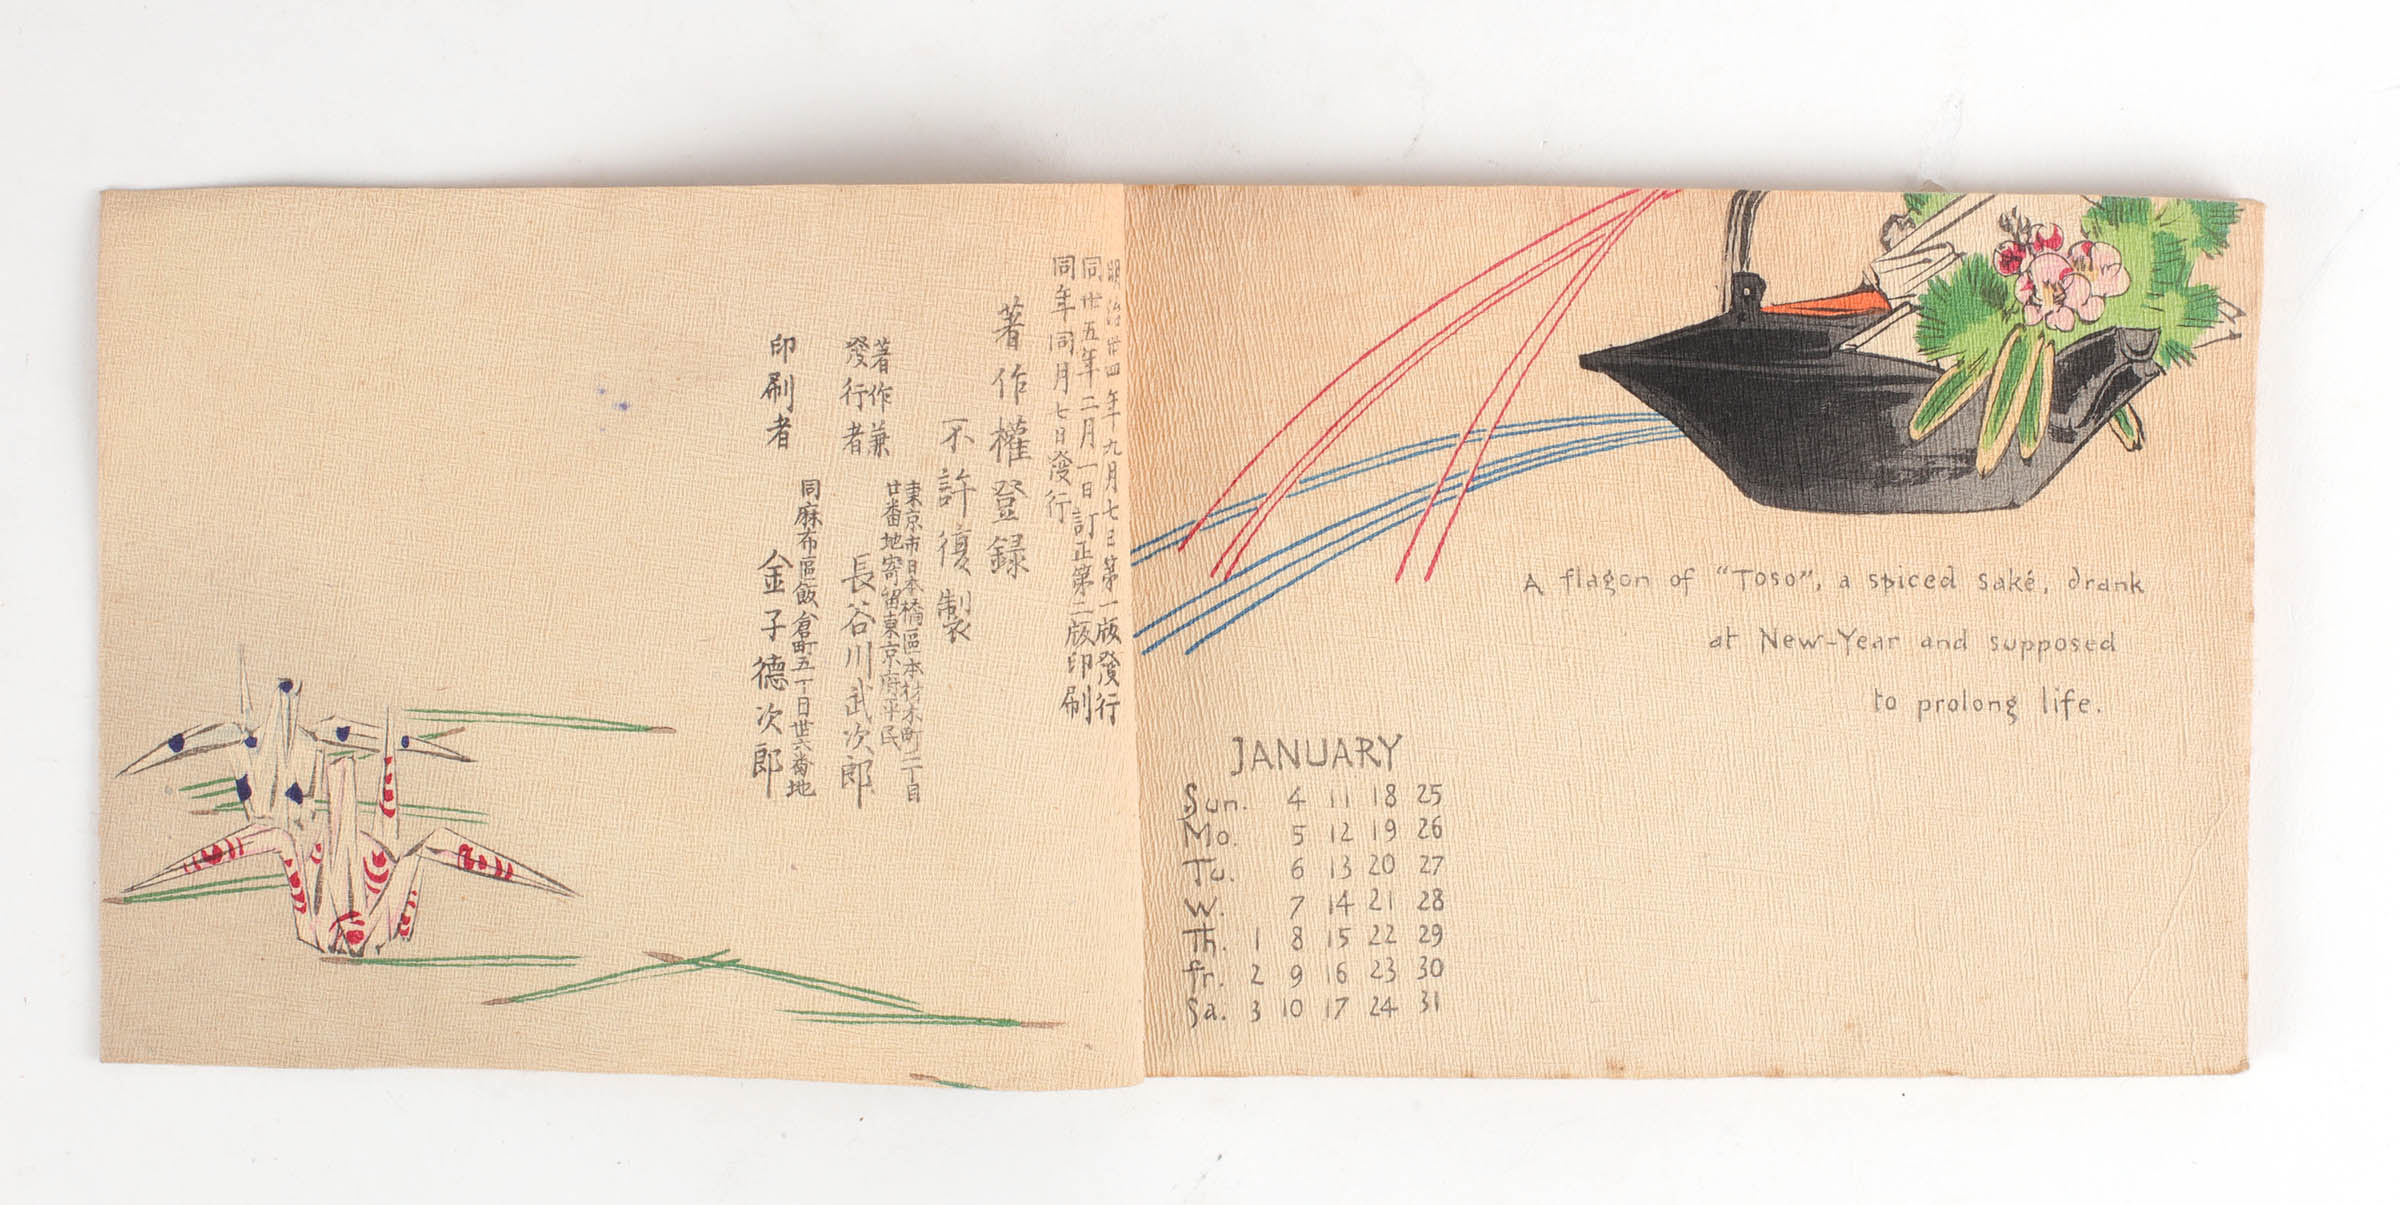 明治廿四年九月七日第一版發行
同廿五年二月一日訂正第二版印刷
同年同月七日發行
著作權登録
不許復製
著作兼
發行者
東京市日本橋區本材木町二丁目
廿番地寄留東京府平民
長谷川武次郎
同麻布區飯倉町五丁目卅六番地
印刷者
金子德次郎
A flagon of "Toso", a spiced saké, drank
at New-Year and supposed
to prolong life.
JANUARY
Sun. 4 11 18 25
Mo. 5 12 19 26
Tu. 6 13 20 27
W. 7 14 21 28
Th. 1 8 15 22 29
fr. 2 9 16 23 30
Sa. 3 10 17 24 31